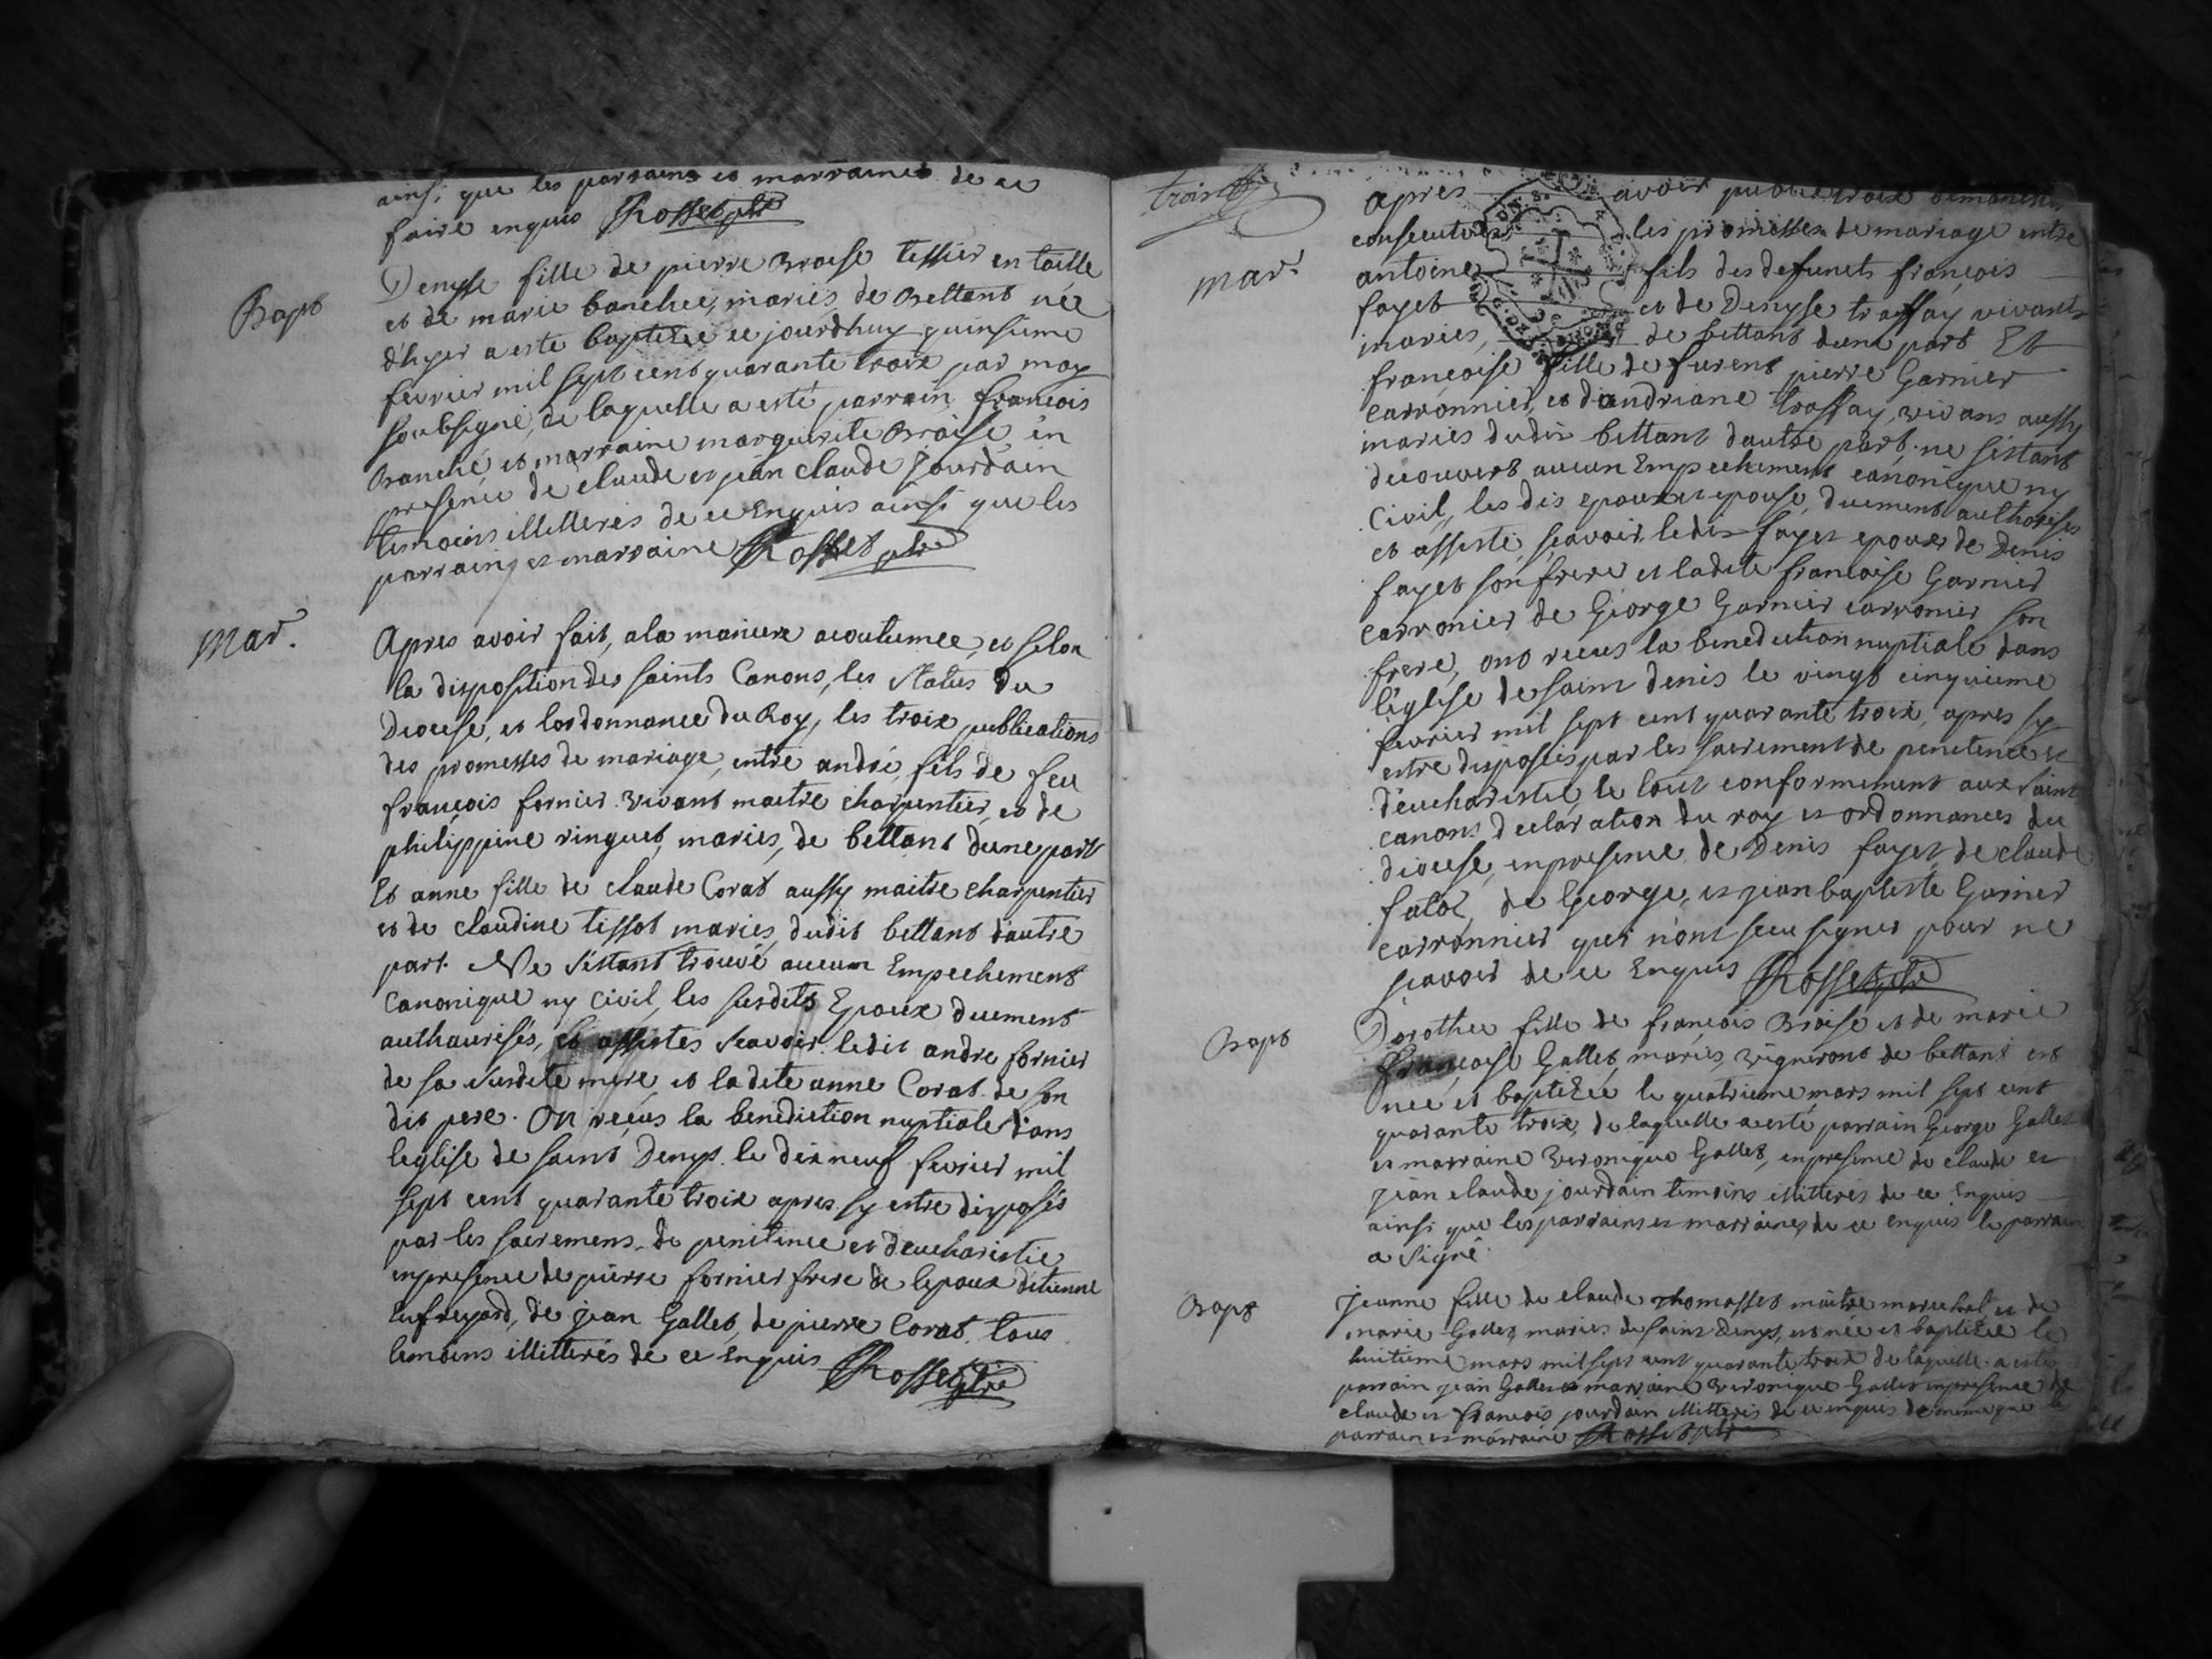 ainsi que les parrains et marraines de ce
faire enquis Rosset ptre
Bapt
Denyse fille de pierre Braise tessier en toille
et de marie banchie, mariés de Bettant née
d'hyer a esté baptizée ce jourdhuy quinsieme
fevrier mil sept cent quarante troix par moy
soubsigné, de laquelle a esté parrain françois
Branché, et marraine marguerite Braise, en
presence de claude et jean claude Jourdain
temoins illitterés de ce Enquis ainsi que les
parrain, et marraine Rosset ptre
Mar.
Apres avoir fait, a la maniere acoutumée, et selon
la disposition des saints Canons, les Statuts du
Diocese, et lordonnance du Roy, les troix publications
des promesses de mariage, entre andré, fils de feu
françois fornier vivant maitre charpentier, et de
philippine ringuet, mariés, de bettant dune part
Et anne fille de claude Corat aussy maitre charpentier
et de claudine tissot mariés, dudit bettant d'autre
part. Ne s'estant trouvé aucun Empechement
Canonique ny civil, les susdits Epoux duement
authaurisés, et assistés scavoir ledit andre fornier
de sa susdite mere, et ladite anne Corat de son
dit pere. On reçus la benediction nuptiale dans
leglise de saint Denys le dixneuf fevrier mil
sept cent quarante troix apres sy estre disposés
par les sacremens de penitence et deucharistie
en presence de pierre fornier frere de lepoux ditienne
jufreyard, de jean Gallet, de pierre Corat, tous
temoins illitterés de ce Enquis Rosset ptre
trois
Mar.
Apres avoir publié troix dimanches
consecutives les promesses de mariage entre
antoine fils des defunets françois
fayet et de Denyse trassay vivants
mariés, de bettant dune part Et
françoise fille de furent pierre Garnier
carronnier, et dandriane trassay, vivans aussy
mariés dudit bettant dautre part. ne s'estant
decouvert aucun Empechement canonique ny
civil, les dis epoux et epouse, duement authorisés
et assisté, sçavoir, ledit fayet epoux de Denis
fayet son frere et ladite francoise Garnier
carronier, de George Garnier carronier son
frere, ont recus la benediction nuptiale dans
l'église de saint denis le vingt cinquieme
fevrier mil sept cent quarante troix, apres sy
estre disposés par les sacrement de penitence et
d'eucharistie, le tout conformement aux saint
canons declaration du roy et ordonnances du
diocese, en presence de Denis fayet, de claude
de George, et jean baptiste Garnier
carronnier qui n'ont sceu signer pour ne
scavoir de ce Enquis Rosset ptre
Bapt
Dorothee fille de françois Braise et de marie
françoise Gallet, mariés, vignerons de bettant est
née et baptizée le quatrieme mars mil sept cent
quarante troix, de laquelle a esté parrain George Gallet
et marraine veronique Gallet, en presence de claude et
jean claude jourdain temoins illitterés de ce Enquis
ainsi que les parrains et marraines de ce enquis le parrain
a signé.
Bapt
Jeanne fille de claude thomasset maitre marechal, et de
marie Gallet, mariés de saint Denys, est née et baptizée le
huitieme mars mil sept cent quarante troix de laquelle a esté
parrain jean Gallet et marraine veronique Gallet en presence de
claude et francois jourdain illitterés de ce enquis de meme que le
parrain et marraine Rosset ptre